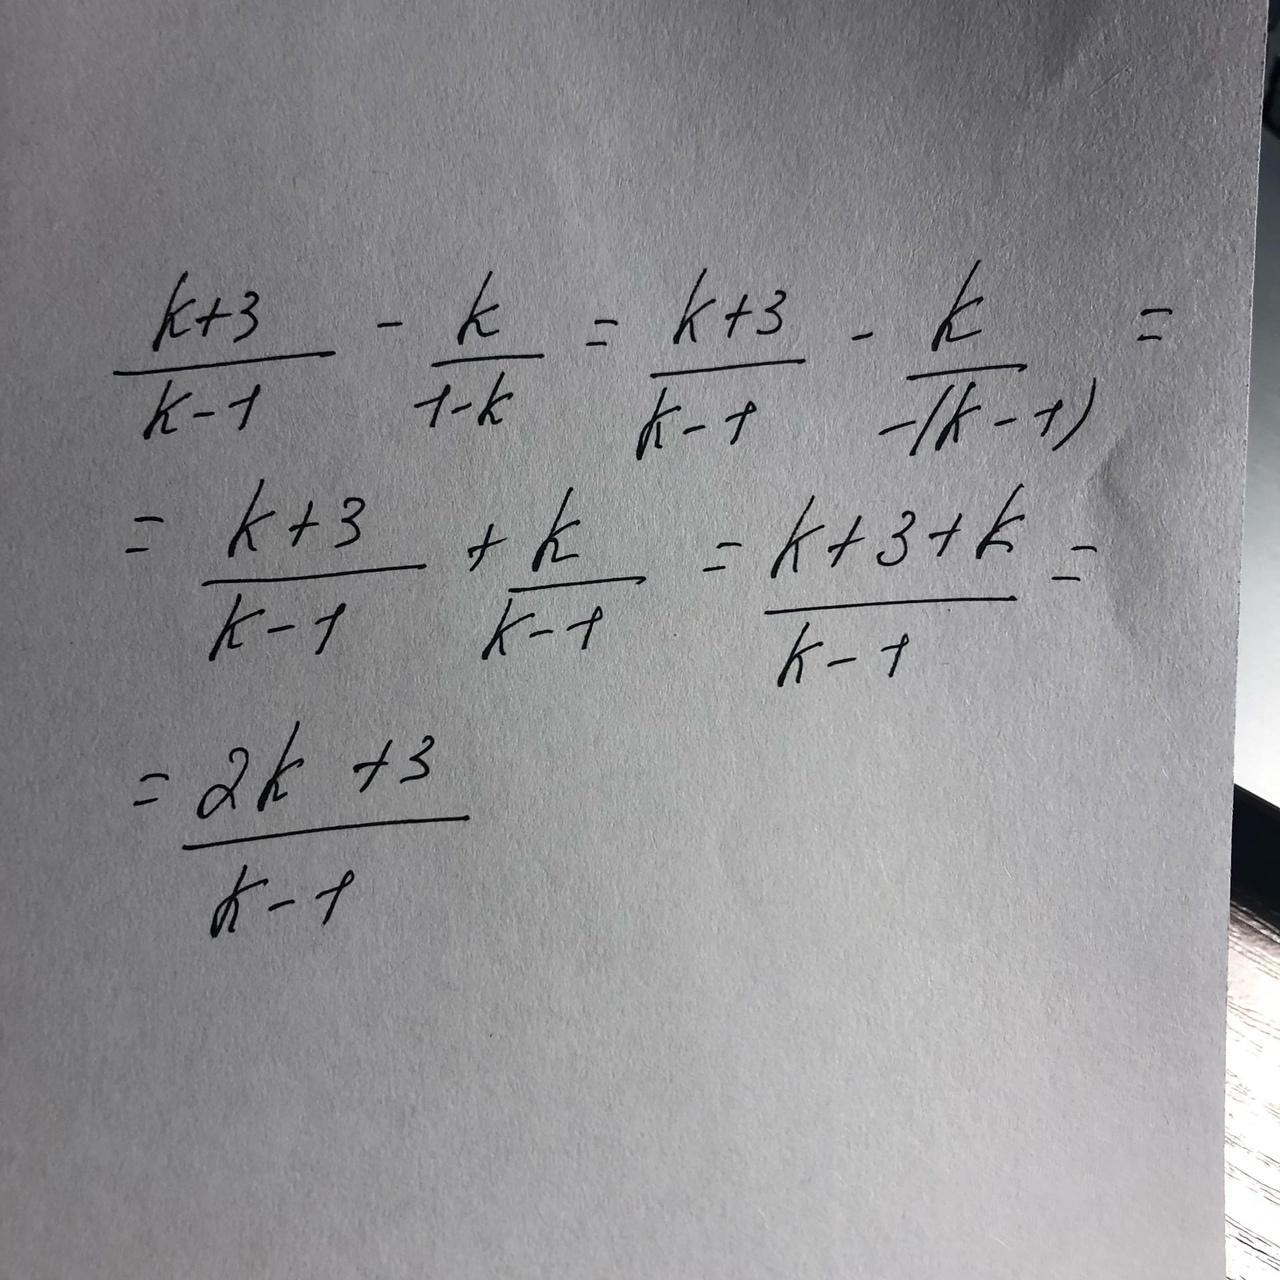 (k+3)/(k-1) - k/(1-k) = (k+3)/(k-1) - k/(-(k-1)) =
= (k+3)/(k-1) + k/(k-1) = (k+3+k)/(k-1) =
= (2k+3)/(k-1)